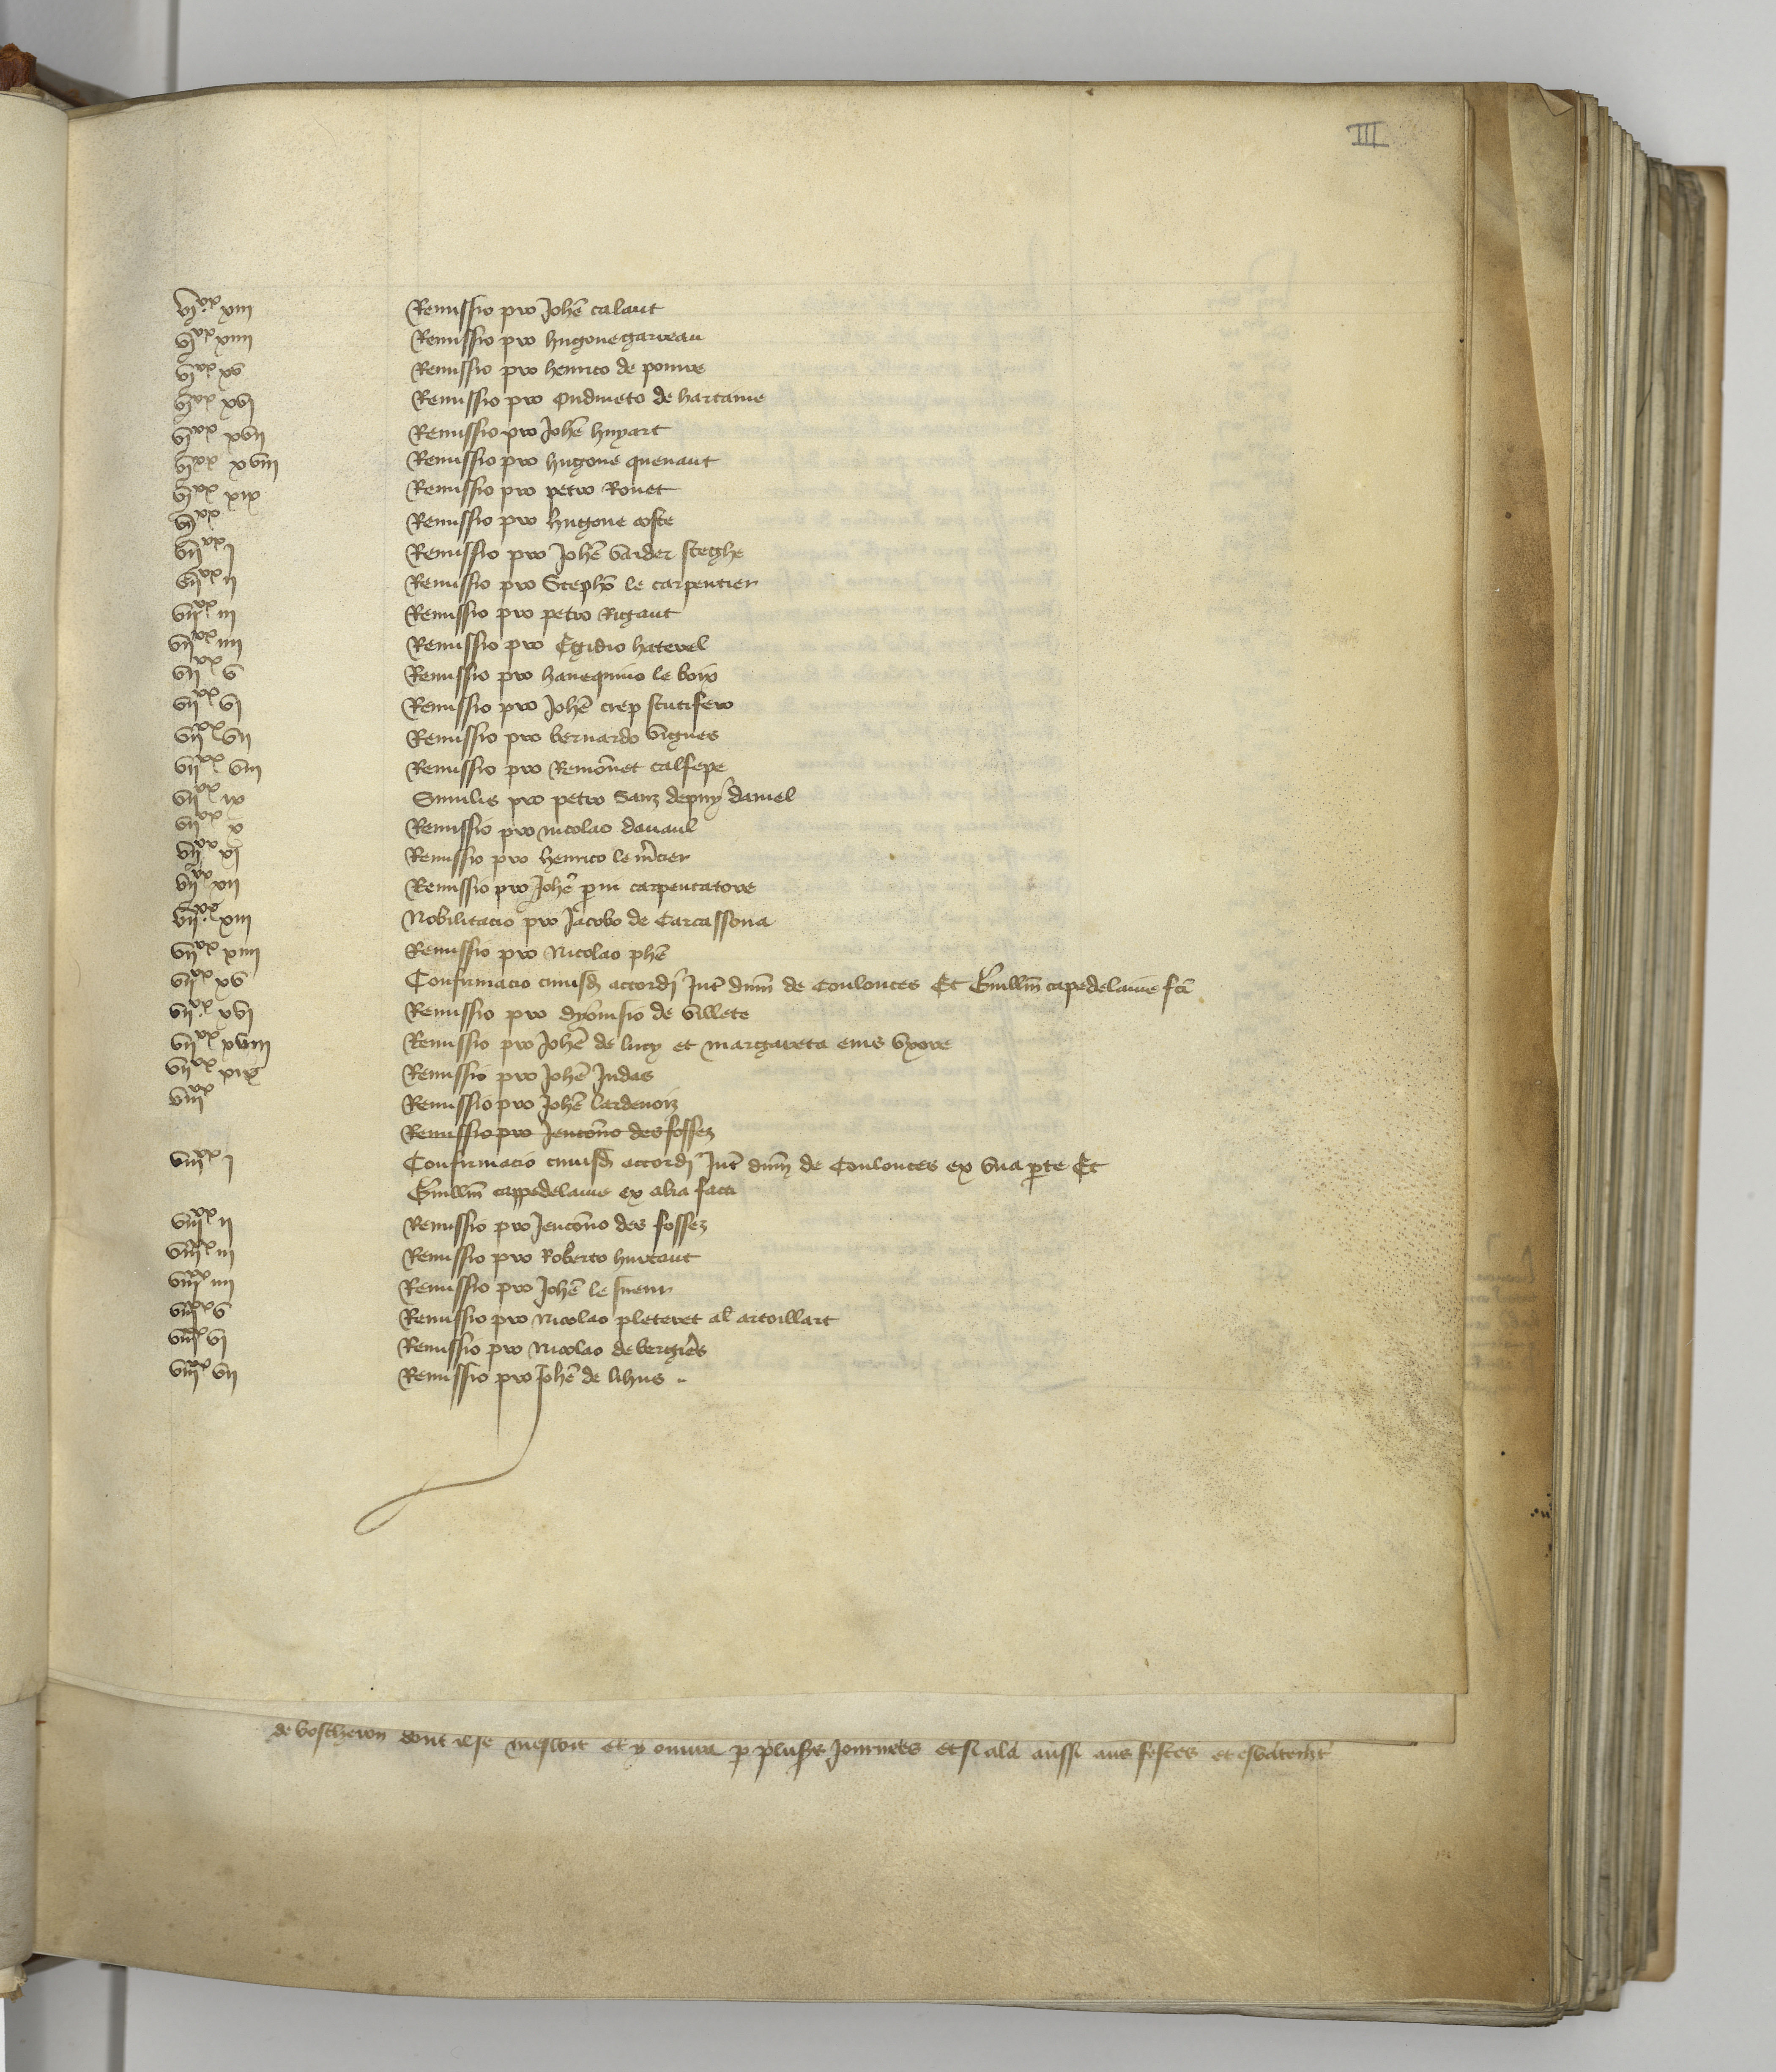 III
vjxx xiij Remissio pro Johē calaut
vjxx xiiij Remissio pro hugone garreau
vjxx xv Remissio pro henrico de pomre
vjxx xvj Remissio pro Oudineto de hartaine
vjxx xvij Remissio pro Johē huyart
vjxx xviij Remissio pro hugone quenaut
vjxx xix Remissio pro petro Rouet
vijxx Remissio pro hugone coste
vijxx j Remissio pro Johē vander steghe
vijxx ij Remissio pro Stephō le carpentier
vijxx iij Remissio pro petro Rigaut
vijxx iiij Remissio pro Egidio haterel
vijxx v Remissio pro hanequino le boix
vijxx vj Remissio pro Johē crep scutifero
vijxx vij Remissio pro bernardo vignes
vijxx viij Remissio pro Remōnet calsepe
vijxx ix Similis pro petro Sanz depuy daniel
vijxx x Remissio pro nicolao dauaul
vijxx xj Remissio pro henrico le m̄cier
vijxx xij Remissio pro Johē pm carpentatore
vijxx xiij Nobilitacio pro Jacobo de Carcassona
vijxx xiiij Remissio pro Nicolao phē
vijxx xv Confirmacio cuiusd accordj Int̄ dnm̄ de Coulonces Et Guillm̄ capedelaine fcī
vijxx xvj Remissio pro dyonisio de villete
vijxx xviij Remissio pro Johē de lucy et margareta eius vxore
vijxx xix Remissio pro Johē Judas
viijxx Remissio pro Johē lardenoiz
Remissio pro Jencōno des fossez
viijxx j Confirmacio cuiusd accordj Int̄ dnm̄ de Coulonces ex vna pte Et
Guillm̄ cappedelaine ex alia facti
viijxx ij Remissio pro Jencōno des fossez
viijxx iij Remissio pro Roberto hurtaut
viijxx iiij Remissio pro Johē le sueur
viijxx v Remissio pro Nicolao pleteret al artoillart
viijxx vj Remissio pro Nicolao de vergiēs
viijxx vij Remissio pro Johē de lihus
de boscheron dont il se mescrut et y ouura p plusrs Journees et si ala aussi aus festes et